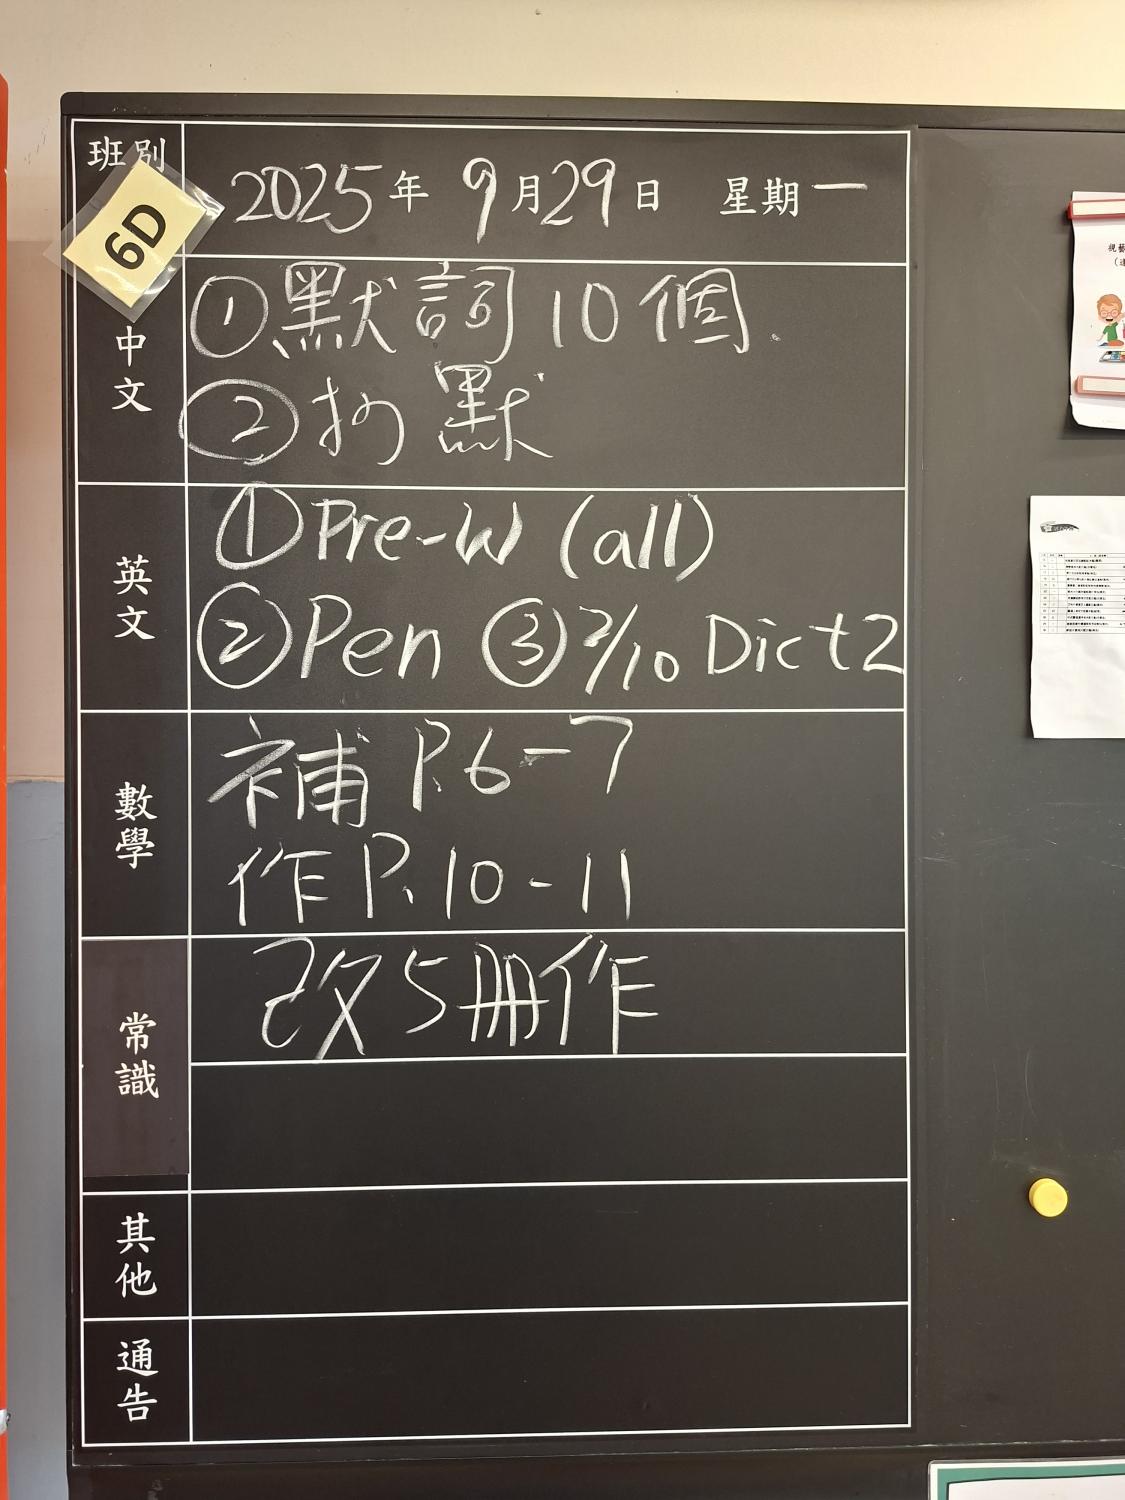 班別
6D
2025年 9月29日 星期一
中文
①默詞10個.
②扚默
英文
①Pre-W (all)
②Pen ③2/10 Dict2
數學
補 P.6-7
作P.10-11
常識
改5冊作
其他
通告
視藝